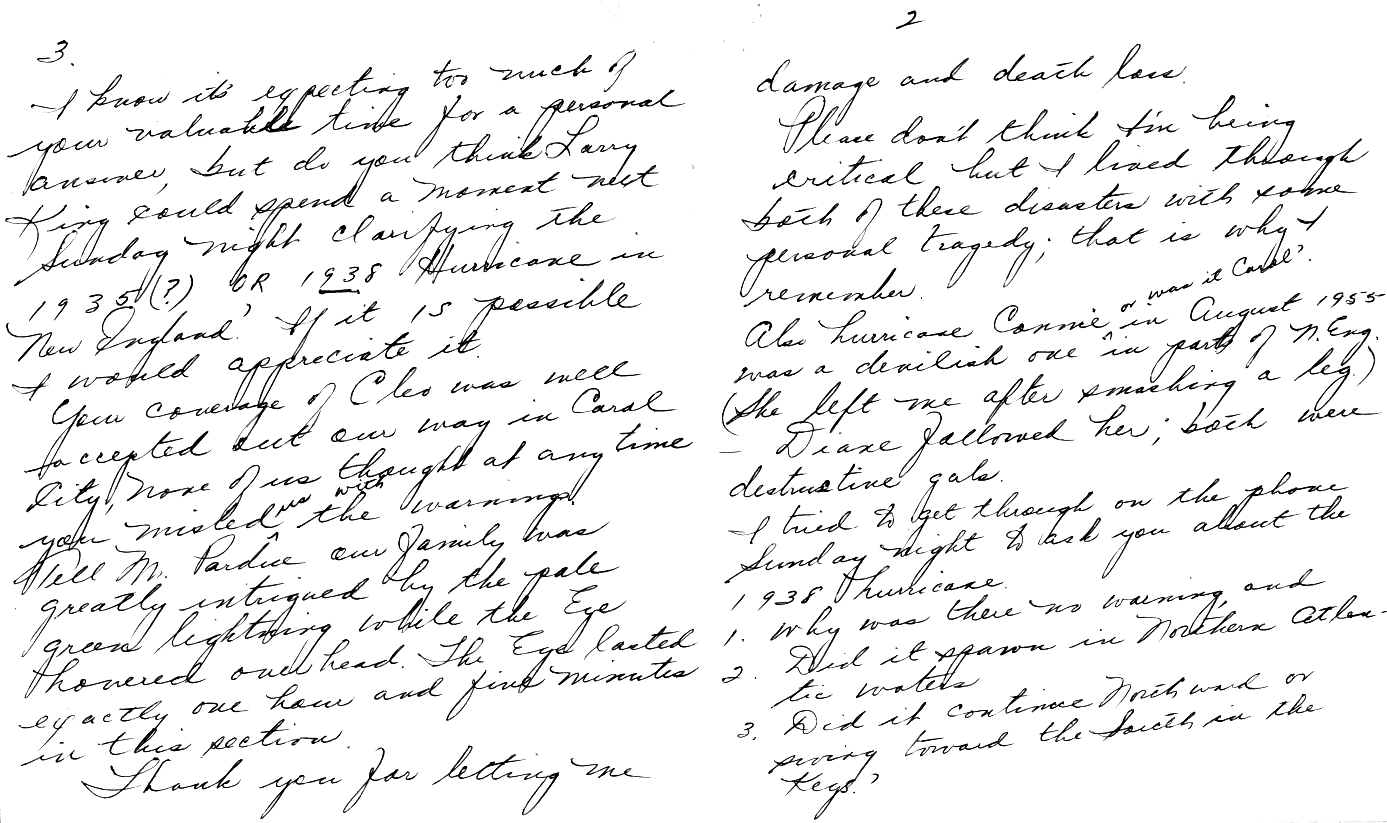 3.
I know it's expecting too much of
your valuable time for a personal
answer, but do you think Larry
King could spend a moment next
Sunday night clarifying the
1935(?) OR 1938 Hurricane in
New England? If it is possible
I would appreciate it.
Your coverage of Cleo was well
accepted out our way in Carol
City, none of us thought at any time
you misled us with the warnings.
Tell M. Pardue our family was
greatly intrigued by the pale
green lightning while the Eye
hovered overhead. The Eye lasted
exactly one hour and five minutes
in this section.
Thank you for letting me
2
damage and death loss.
Please don't think I'm being
critical but I lived through
both of these disasters with some
personal tragedy; that is why I
remember.
or was it Carol?
Also hurricane Connie in August 1955
was a devilish one in parts of N. Eng.
(She left me after smashing a leg.)
– Diane followed her; both were
destructive gals.
I tried to get through on the phone
Sunday night to ask you about the
1938 hurricane.
1. Why was there no warning, and
2. Did it spawn in Northern Atlan-
tic waters
3. Did it continue Northward or
swing toward the South in the
Keys?